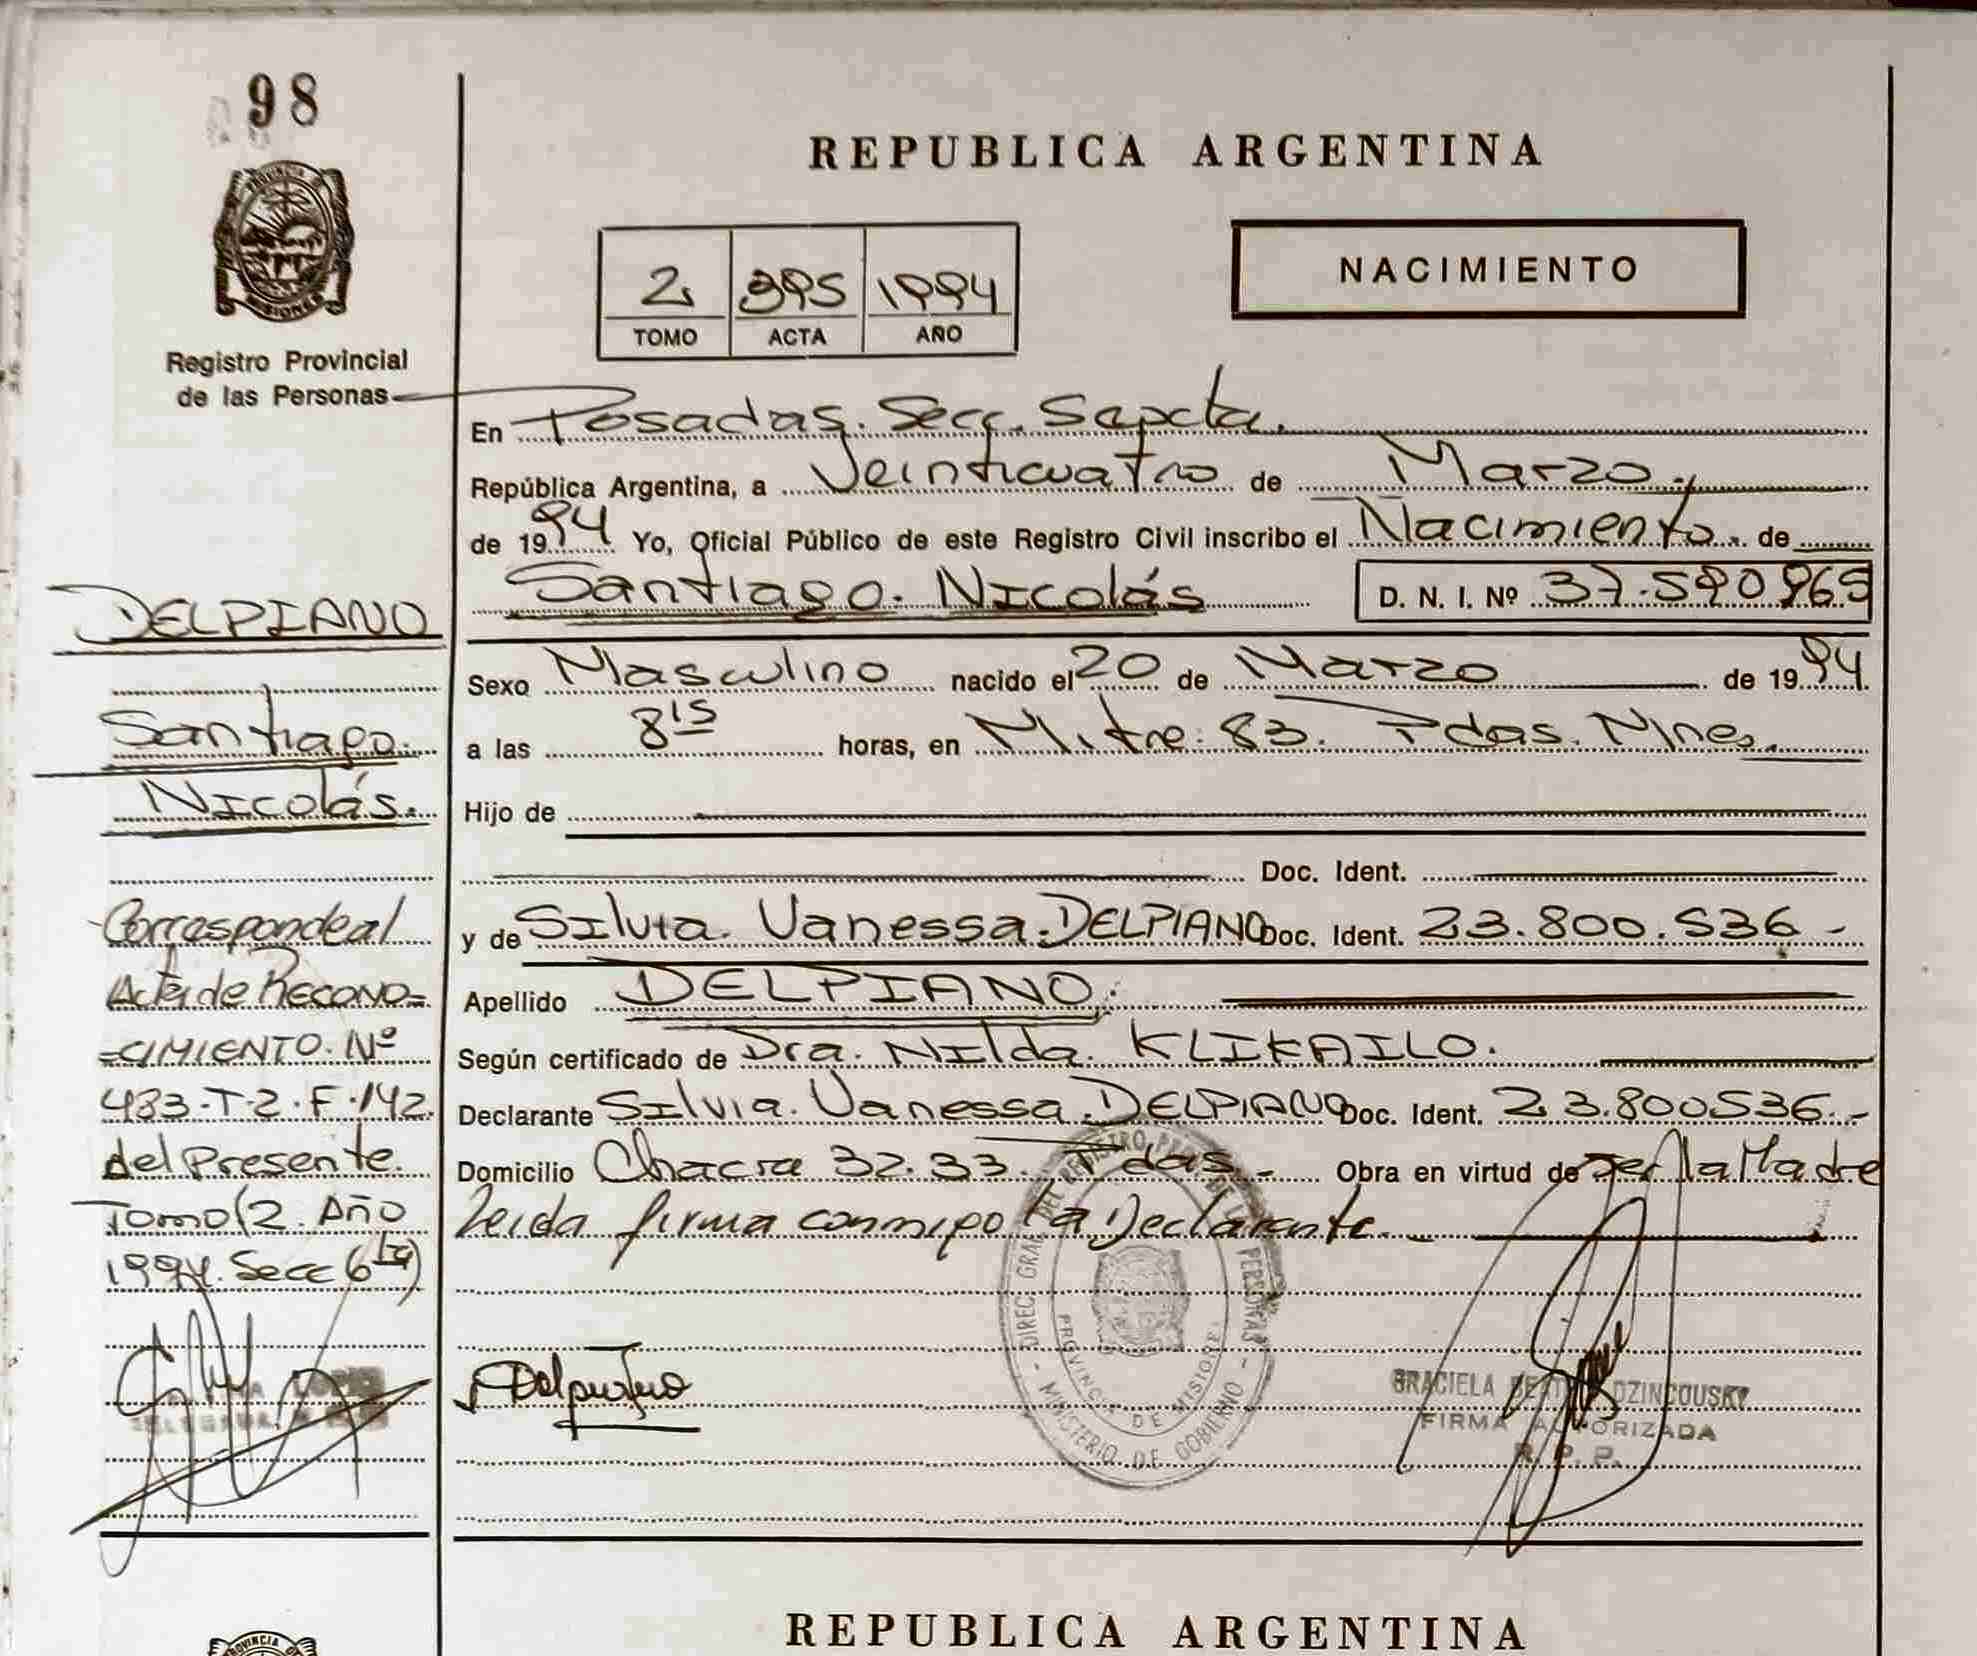 98
Registro Provincial
de las Personas
REPUBLICA ARGENTINA
NACIMIENTO
2 395 1994
TOMO ACTA AÑO
En Posadas. Secc. Sexta.
República Argentina, a Veinticuatro de Marzo
de 1994 Yo, Oficial Público de este Registro Civil inscribo el Nacimiento de
Santiago. Nicolás D. N. I. Nº 37.590965
Sexo Masculino nacido el 20 de Marzo de 1994
a las 8 15 horas, en Mitre 83. Pdas. Mnes.
Hijo de
Doc. Ident.
y de Silvia. Vanessa. DELPIANO Doc. Ident. 23.800.536 -
Apellido DELPIANO.
Según certificado de Dra. Nilda. KLIKAILO.
Declarante Silvia. Vanessa. DELPIANO Doc. Ident. 23.800536.-
Domicilio Chacra 32.33. Pdas.- Obra en virtud de ser la Madre
Leida firma conmigo la Declarante.-
DELPIANO
Santiago.
Nicolás.
Corresponde al
Acta de RECONO=
=CIMIENTO. Nº
483-T-2.F.142.
del Presente
Tomo (2. Año
1994. Secc 6ta)
Delpiano
DIREC. GRAL. DEL REGISTRO PROV. DE LAS PERSONAS
PROVINCIA DE MISIONES
- MINISTERIO DE GOBIERNO -
GRACIELA DZINCOUSKY
FIRMA AUTORIZADA
R. P. P.
PROVINCIA DE
REPUBLICA ARGENTINA